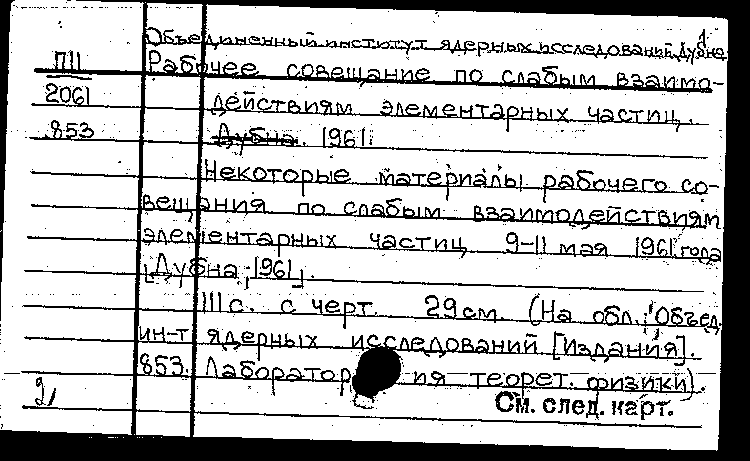 1
Объединенный институт ядерных исследований. Дубна
П11 Рабочее совещание по слабым взаимо-
2061 действиям элементарных частиц.
853 Дубна. 1961.
Некоторые материалы рабочего со-
вещания по слабым взаимодействиям
элементарных частиц 9-11 мая 1961 года
[Дубна, 1961].
111 с. с черт. 29 см. (На обл.: Объед.
ин-т ядерных исследований [Издания].
853. Лаборатория теорет. физики).
См. след. карт.